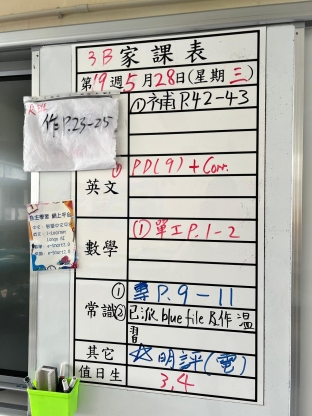 3B 家課表
第19週5月28日(星期三)
作P.23-25
①補P.42-43
英文 ① PD(9) + Corr.
自主學習 網上平台
數學 ①單工P.1-2
常識 ① P.9-11
②已派blue file 及作溫
習
其它 明評(電)
值日生 3,4